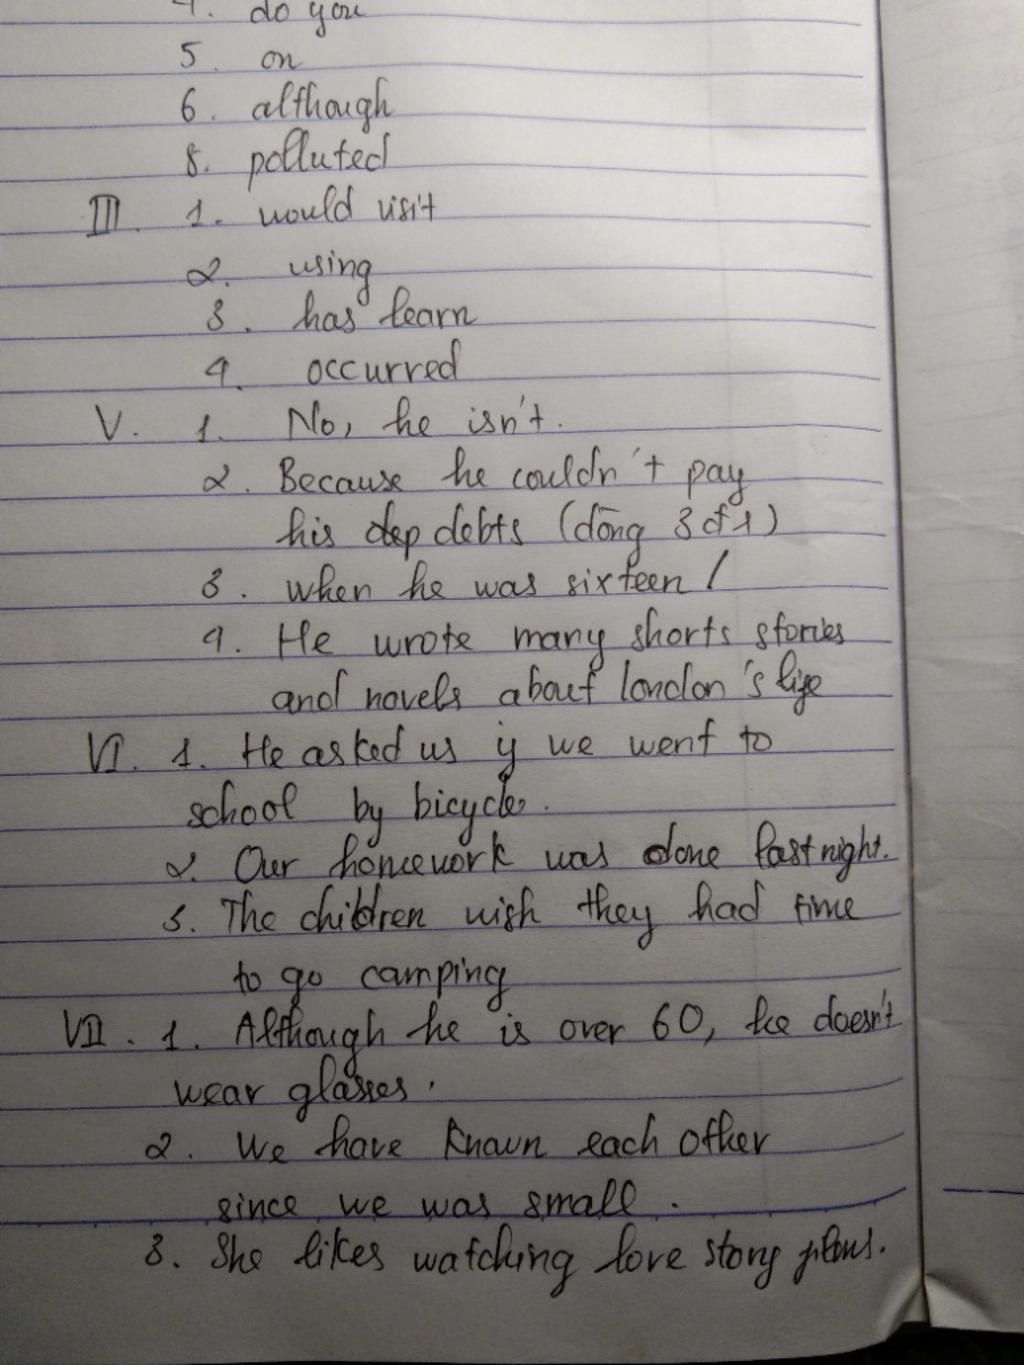 4. do you
5. on
6. although
8. polluted
III. 1. would visit
2. using
3. has learn
4. occurred
V. 1. No, he isn't.
2. Because he couldn't pay
his dep debts (dòng 3 đ 1)
3. when he was sixteen /
4. He wrote many shorts stories
and novels about london's life
VI. 1. He asked us if we went to
school by bicycle.
2. Our homework was done last night.
3. The children wish they had time
to go camping
VII. 1. Although he is over 60, he doesn't
wear glasses.
2. We have known each other
since we was small.
3. She likes watching love story films.